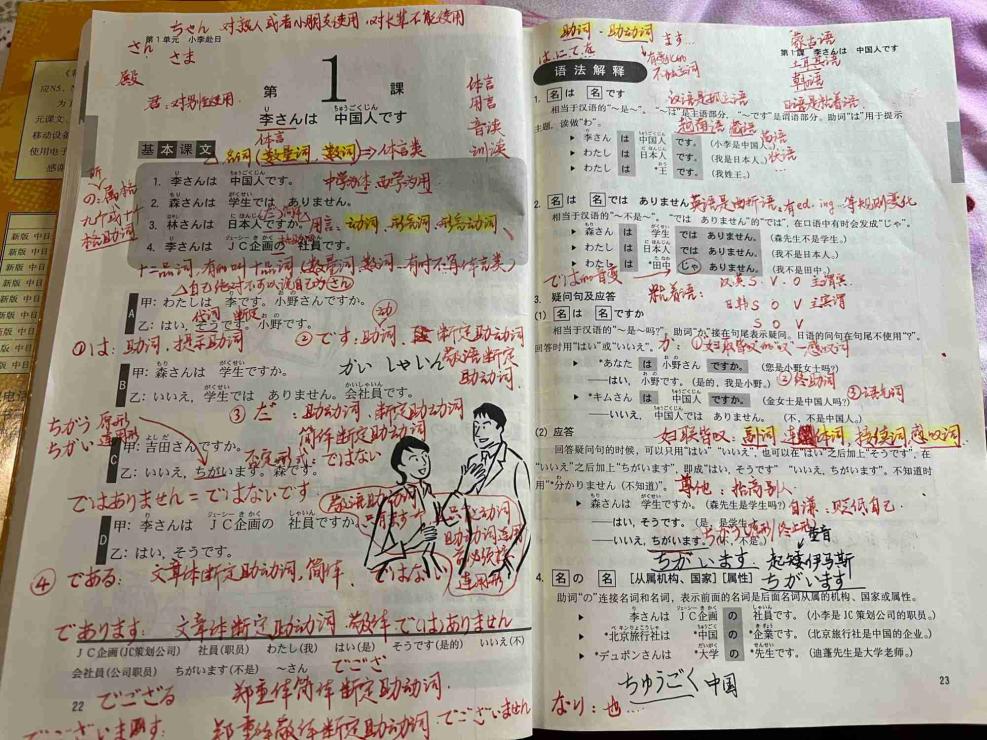 ちゃん 对敌人或者小朋友使用,对长辈不能使用
第1单元 小李赴日
さん
さま
殿
君:对男性使用
第 1 課
李さんは 中国人です
体言
用言
音读
训读
体言
基本课文
名词(数量词、数词)⇒体言类
1. 李さんは 中国人です。
中学为体 西学为用
2. 森さんは 学生では ありません。
3. 林さんは 日本人ですか。
用言:动词、形容词、形容动词、
4. 李さんは JC企画の 社員です。
十二品词,有的叫十品词(数量词、数词一有时不写体言类)
△自己绝对不可以说自己为(さん)
A
甲:わたしは 李です。小野さんですか。
代词 断定
乙:はい,そうです。小野です。
①は:助词,提示助词
②です:助词,断定助动词
かいしゃいん
敬语断定助动词
B
甲:森さんは 学生ですか。
乙:いいえ,学生では ありません。会社員です。
③だ:助动词,断定助动词
简体断定助动词
ちがう 原形
ちがい 連用形
C
甲:吉田さんですか。
否定形式:ではない
乙:いいえ,ちがいます。森です。
ではありません=ではないです
D
甲:李さんは JC企画の 社員ですか。
乙:はい,そうです。
④である:文章体断定助动词,简体、ではない
であります:文章体断定助动词 敬体 ではありません
JC企画(JC策划公司) 社員(职员) わたし(我) はい(是) そうです(是的) いいえ(不)
会社員(公司职员) ちがいます(不是) ～さん
でござる 郑重体简体断定助动词.
22
でございます:郑重体敬体断定助动词 でございません
助词·助动词 ます…
はにてを
第1課 李さんは 中国人です
蒙古语
土耳其语
韩语
语法解释
1. 名は 名です
汉语是孤立语
日语是粘着语
相当于汉语的“～是～”。“～は”是主语部分,“～です”是谓语部分。助词“は”用于提示
主题,读做“わ”。
越南语 藏语 苗语
▶ 李さん は 中国人 です。(小李是中国人。)
▶ わたし は 日本人 です。(我是日本人。)
▶ わたし は *王 です。(我姓王。)
2. 名は 名では ありません
英语是曲折语,有ed、ing等规则变化
相当于汉语的“～不是～”。“では ありません”的“では”,在口语中有时会发成“じゃ”。
▶ 森さん は 学生 では ありません。(森先生不是学生。)
▶ わたし は 日本人 では ありません。(我不是日本人。)
▶ わたし は *田中 じゃ ありません。(我不是田中。)
ではの音変
汉英 S. V. O 主谓宾
3. 疑问句及应答
粘着语:
日韩 S O V 主宾谓
(1) 名は 名ですか
S O V
相当于汉语的“～是～吗?”。助词“か”接在句尾表示疑问。日语的问句在句尾不使用“?”。
回答时用“はい”或“いいえ”。
▶ *あなた は 小野さん ですか。(您是小野女士吗?)
——はい,小野です。(是的,我是小野。)
②终助词
▶ *キムさん は 中国人 ですか。(金女士是中国人吗?)
——いいえ,中国人では ありません。(不,不是中国人。)
(2) 应答
妇联皆叹:副词 连体词 接续词 感叹词.
回答疑问句的时候,可以只用“はい”“いいえ”,也可以在“はい”之后加上“そうです”,在
“いいえ”之后加上“ちがいます”,即成“はい,そうです”“いいえ,ちがいます”。不知道时
用“*分かりません(不知道)”。
尊他:抬高别人.
▶ 森さんは 学生ですか。(森先生是学生吗?)
自谦:贬低自己.
——はい,そうです。(是,是学生。)
——いいえ,ちがいます。(不,不是。)
ちがいます.
4. 名の 名 [从属机构、国家][属性]
ちがいます
助词“の”连接名词和名词,表示前面的名词是后面名词从属的机构、国家或属性。
▶ 李さんは JC企画 の 社員です。(小李是JC策划公司的职员。)
▶ *北京旅行社は *中国 の *企業です。(北京旅行社是中国的企业。)
▶ *デュポンさんは *大学 の *先生です。(迪蓬先生是大学老师。)
ちゅうごく 中国
23
なり:也…